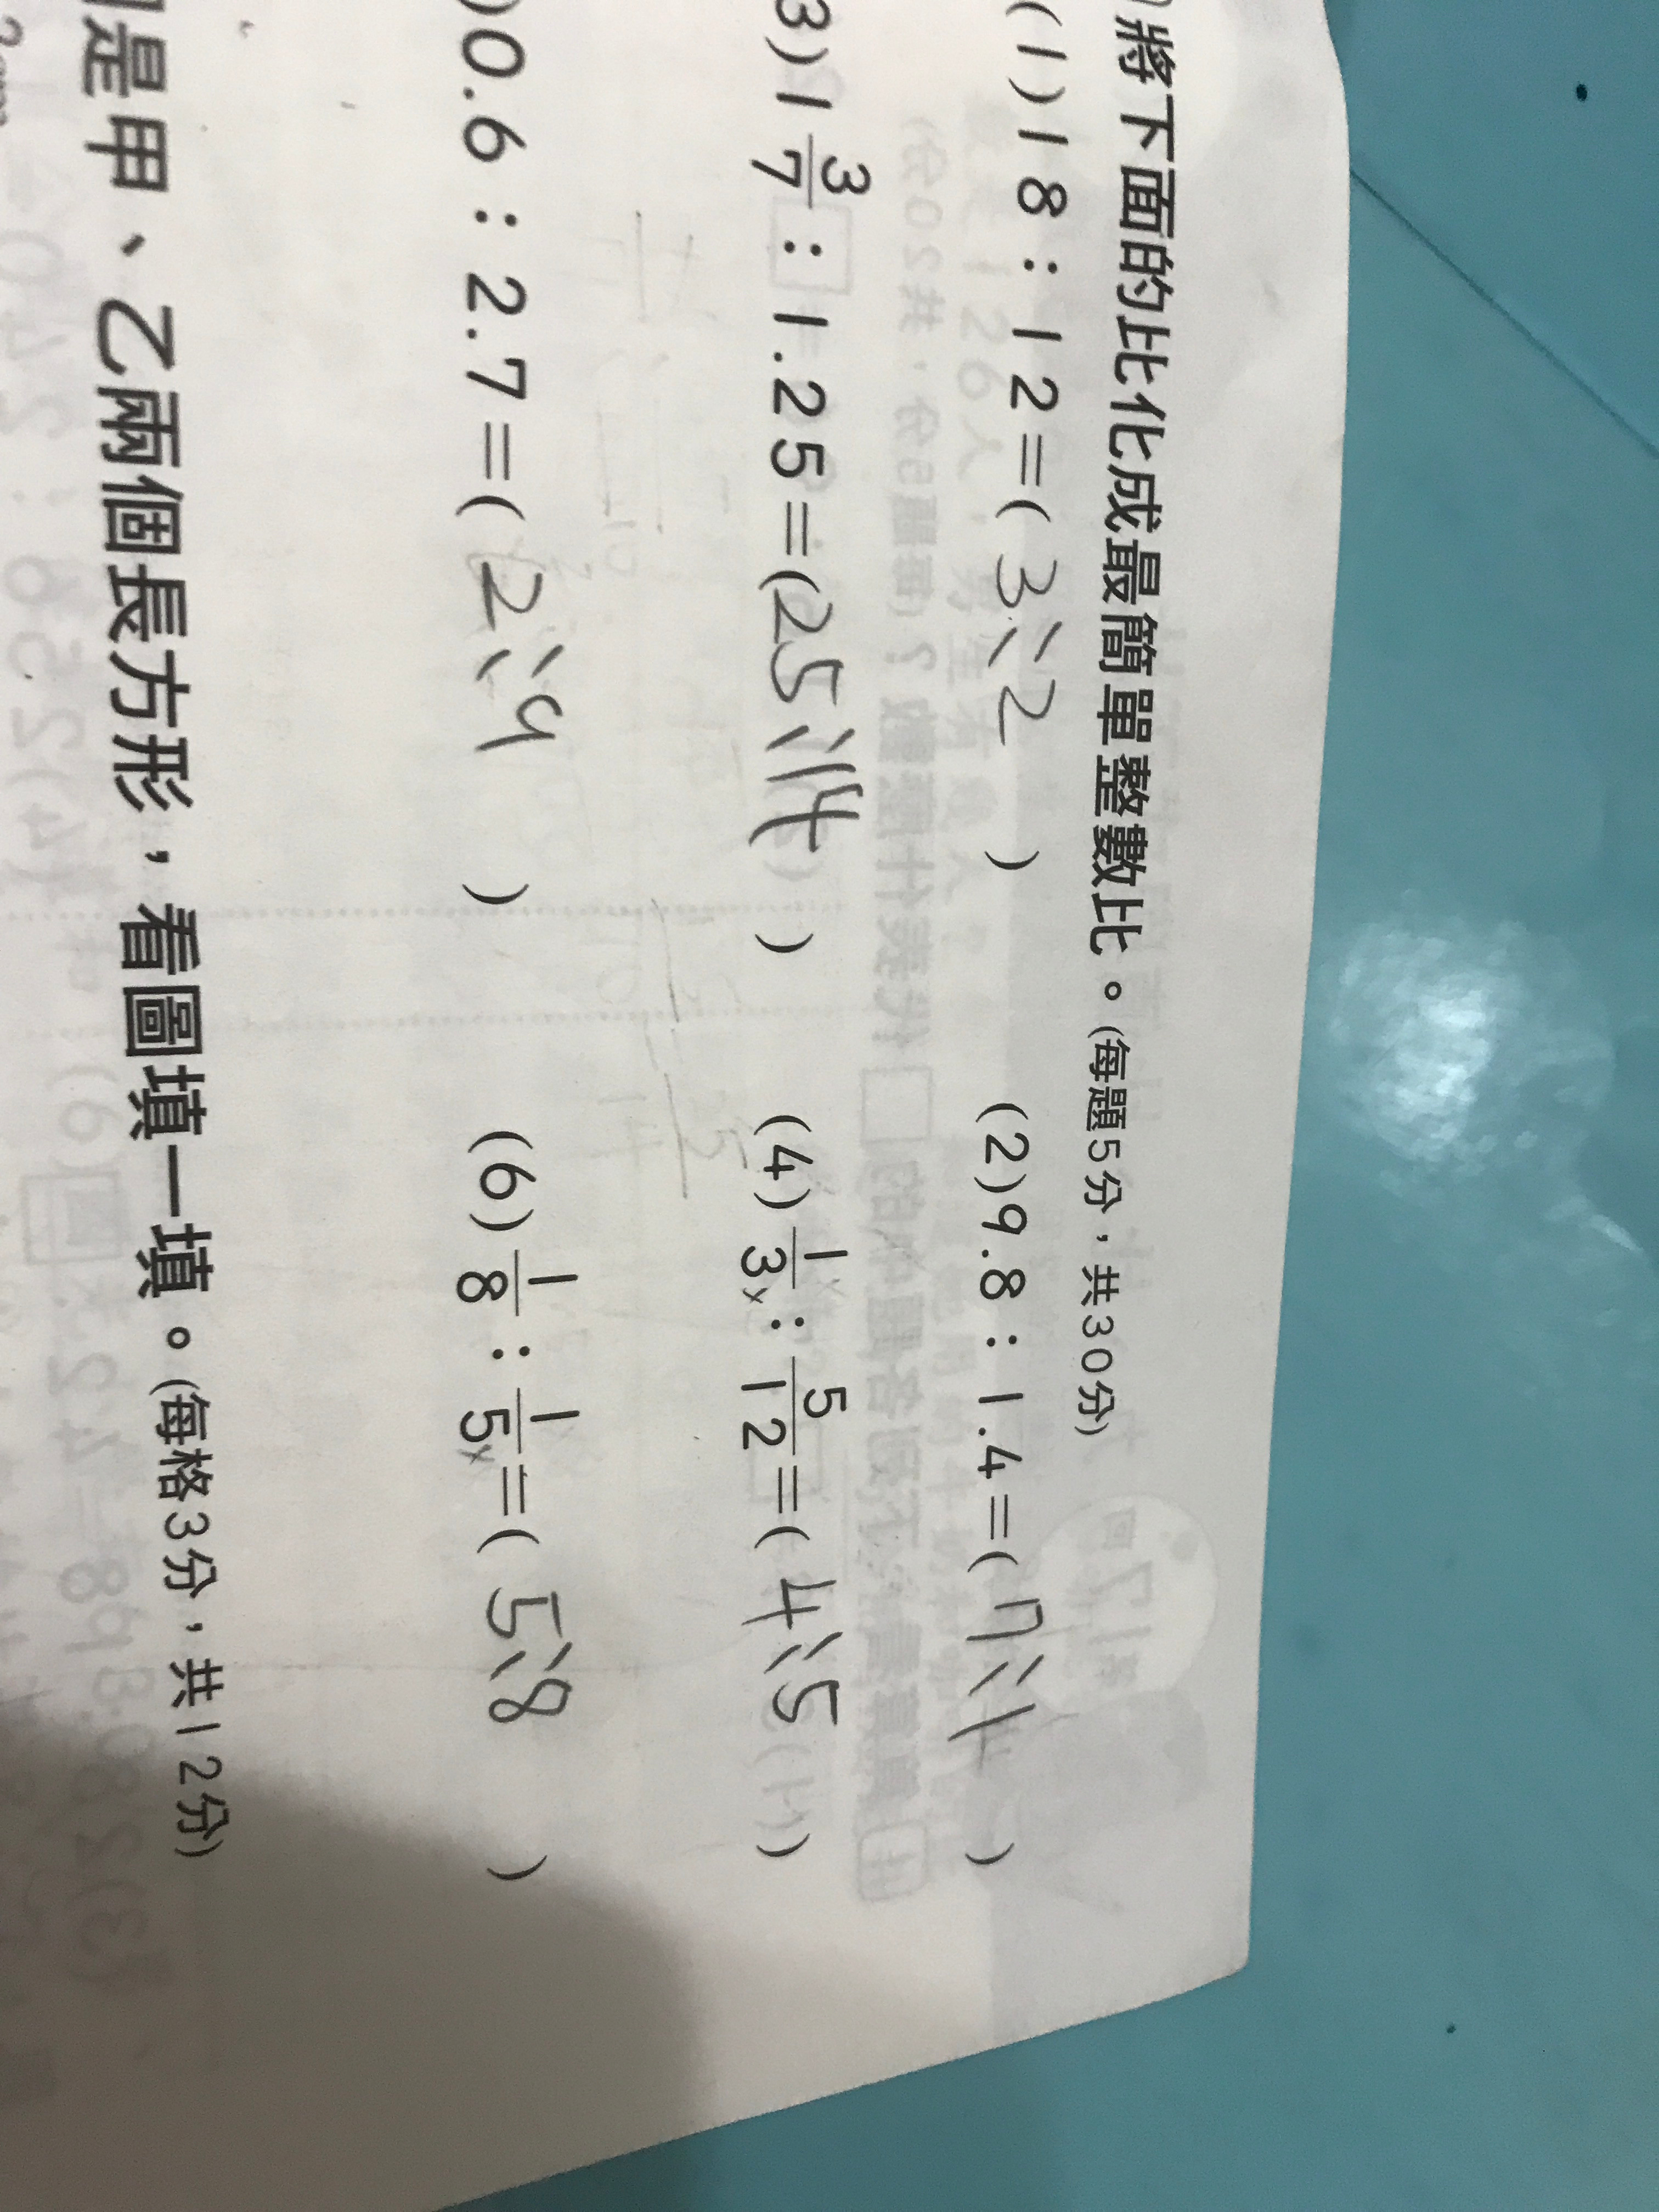 將下面的比化成最簡單整數比。(每題5分，共30分)
(1)18：12=(3：2) (2)9.8：1.4=(7：1)
3)1 3/7：1.25=(25：14) (4)1/3：5/12=(4：5)
)0.6：2.7=(2：9) (6)1/8：1/5=(5：8)
是甲、乙兩個長方形，看圖填一填。(每格3分，共12分)